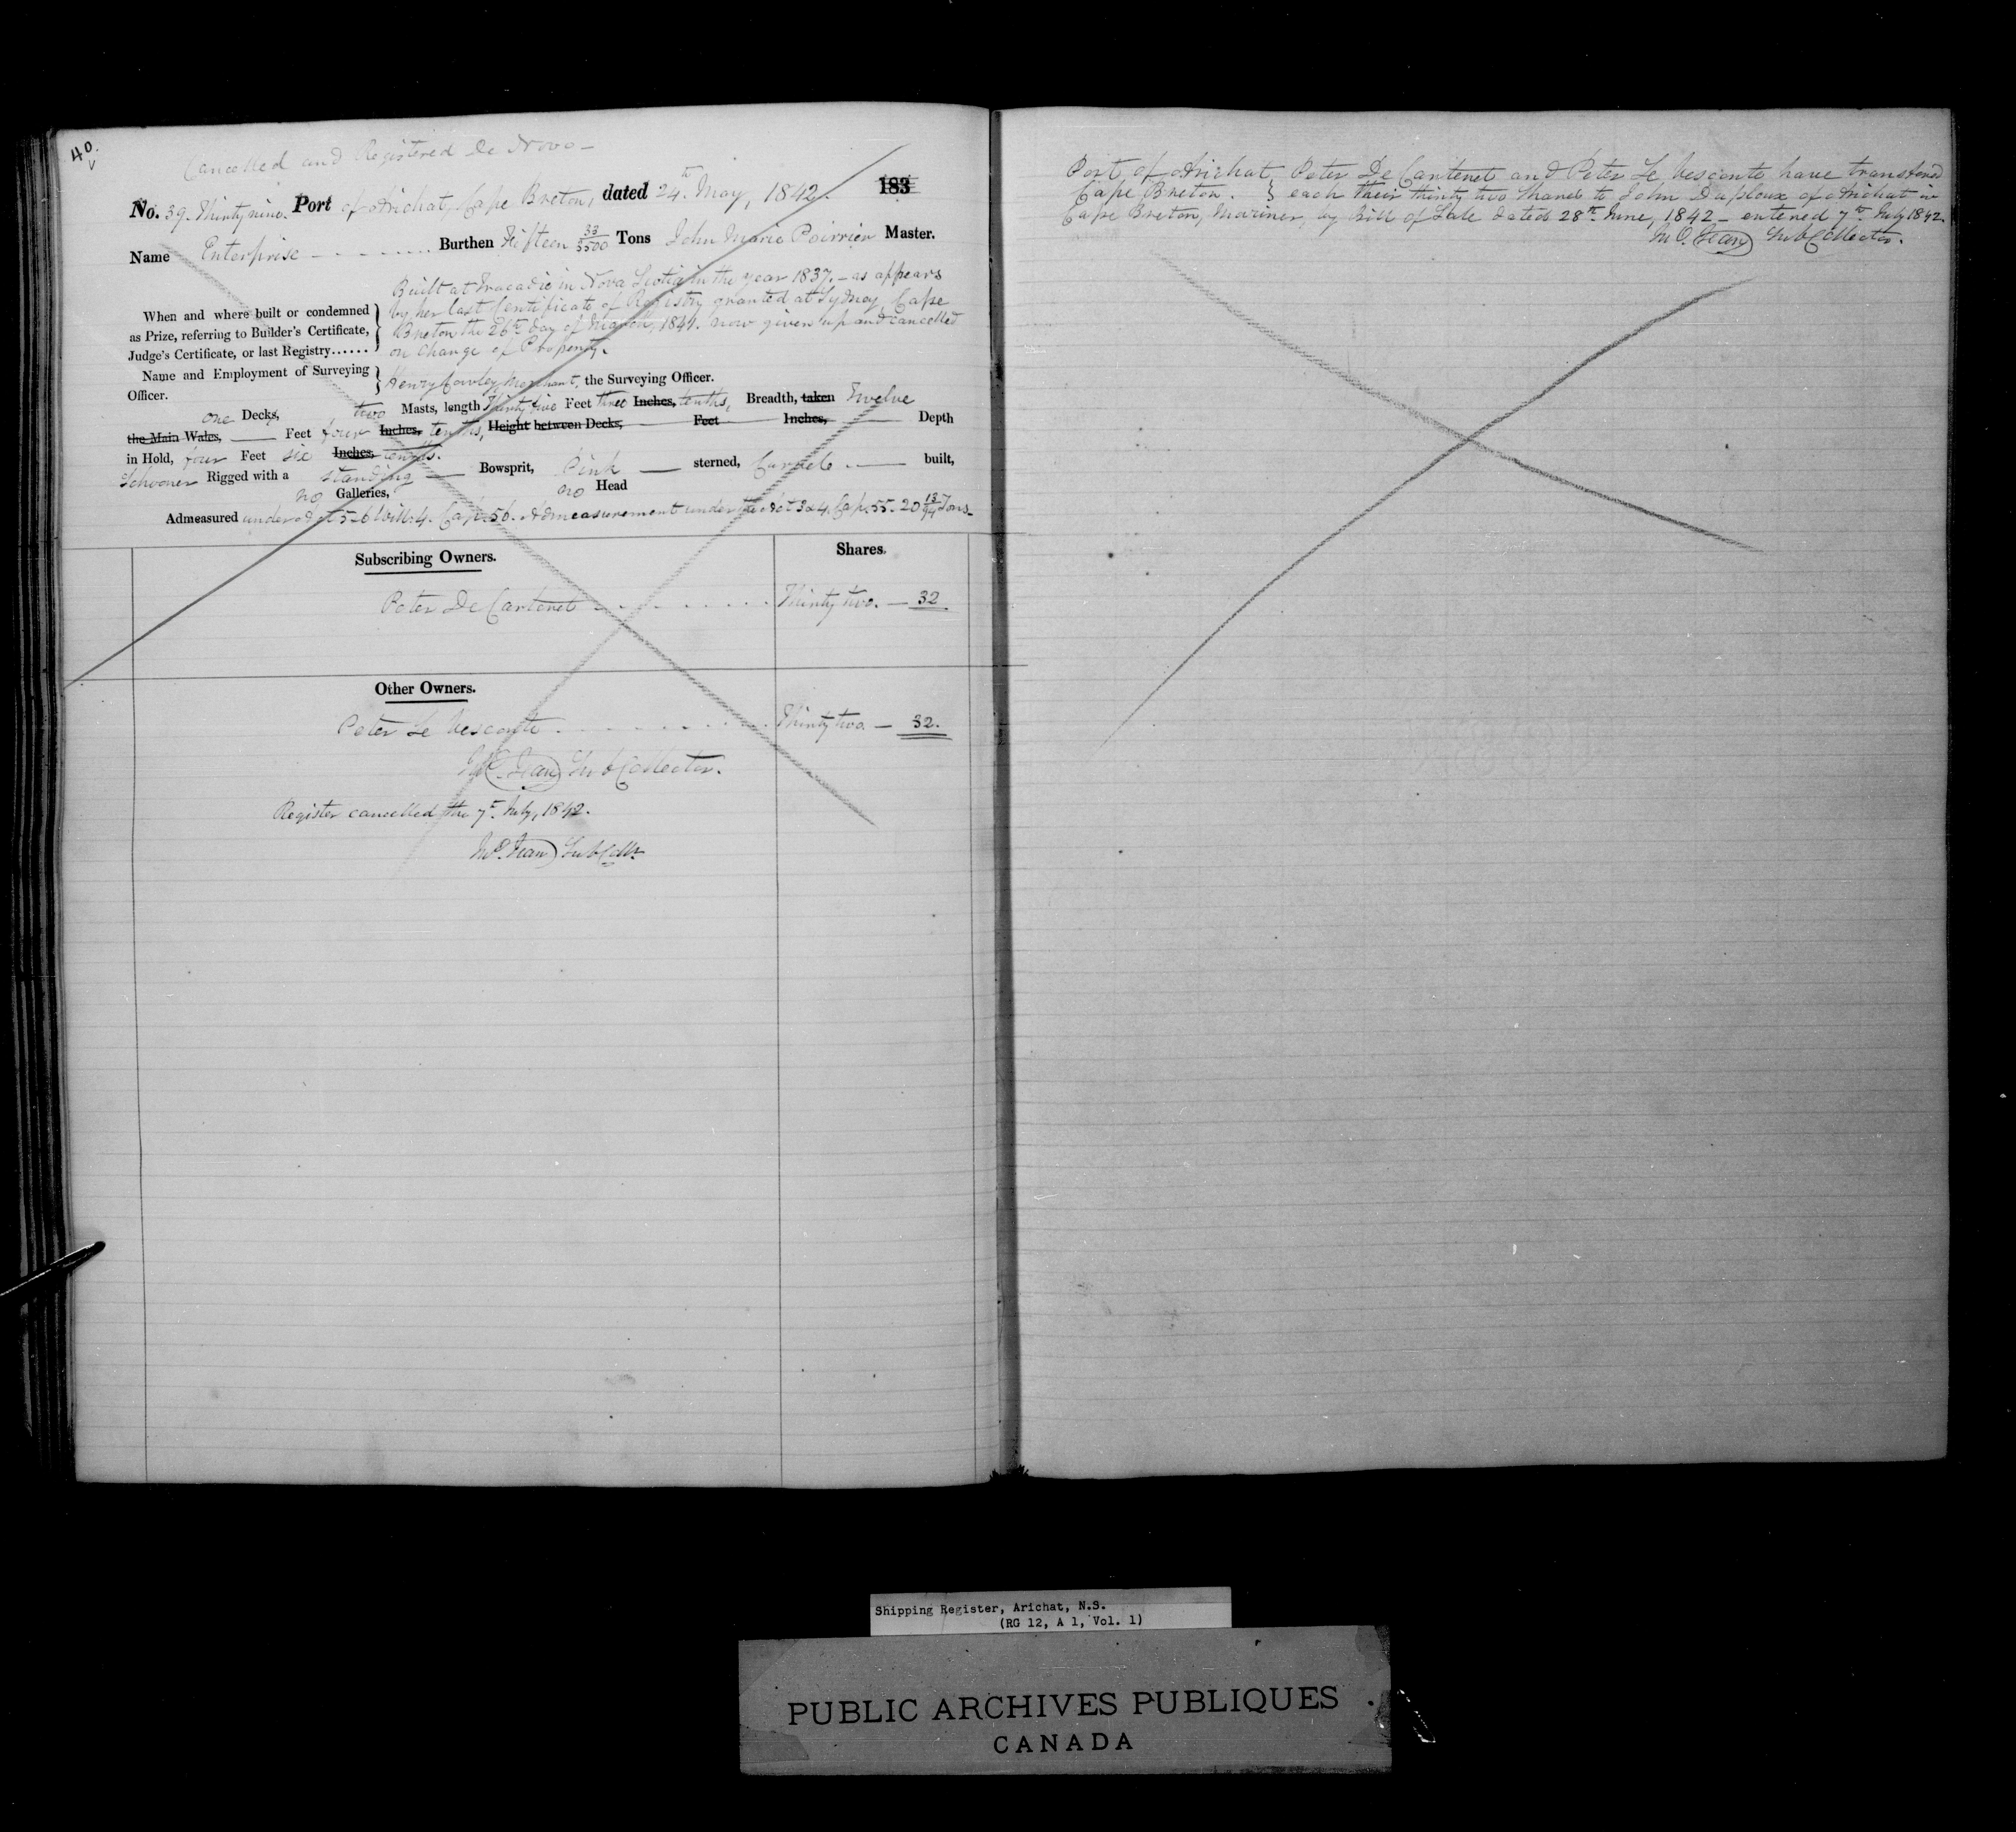 40.
Cancelled and Registered De Novo -
No. 39. Thirty nine. Port of Arichat, Cape Breton, dated 24th May, 1842. 183
Name Enterprise Burthen Fifteen 33/3500 Tons John Marie Poirrier Master.
Built at Tracadie in Nova Scotia in the year 1837. - as appears
When and where built or condemned by her last Certificate of Registry granted at Sydney, Cape
as Prize, referring to Builder's Certificate, Breton the 26th day of March, 1841. now given up and cancelled
Judge's Certificate, or last Registry...... on change of Property.
Name and Employment of Surveying
Officer. Henry Cowley, Merchant, the Surveying Officer.
one Decks, two Masts, length Thirty five Feet three Inches, tenths, Breadth, taken Twelve
the Main Wales, Feet four Inches, tenths, Height between Decks, Feet Inches, Depth
in Hold, four Feet six Inches, tenths.
Schooner Rigged with a standing Bowsprit, Pink sterned, Carvele built,
no Galleries, no Head
Admeasured under Act 5-6 Will: 4. Cap. 56. Admeasurement under the Act 3 & 4. Cap. 55. 20 13/94 Tons -
Subscribing Owners. Shares.
Peter De Carteret Thirty two. - 32
Other Owners.
Peter Le Vesconte Thirty two - 32.
Jn O. Jean Sub Collector.
Register cancelled the 7th July, 1842.
Jn O. Jean Sub Collr
Port of Arichat, } Peter De Carteret and Peter Le Vesconte have transfered
Cape Breton. } each their thirty two shares to John Duploux of Arichat in
Cape Breton, Mariner, by Bill of Sale dated 28th June, 1842 - entered 7th July 1842.
Jn O. Jean Sub Collector.
Shipping Register, Arichat, N.S.
(RG 12, A 1, Vol. 1)
PUBLIC ARCHIVES PUBLIQUES
CANADA